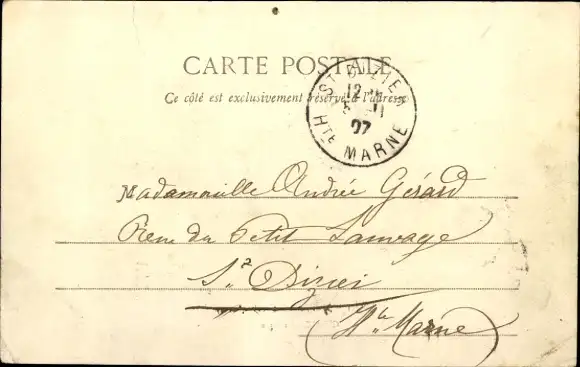 CARTE POSTALE
Ce côté est exclusivement réservé à l'adresse
ST DIZIER
12
11
02
HTE MARNE
Mademoiselle Andrée Gérard
du Petit Sauvage
St Dizier
Hte Marne